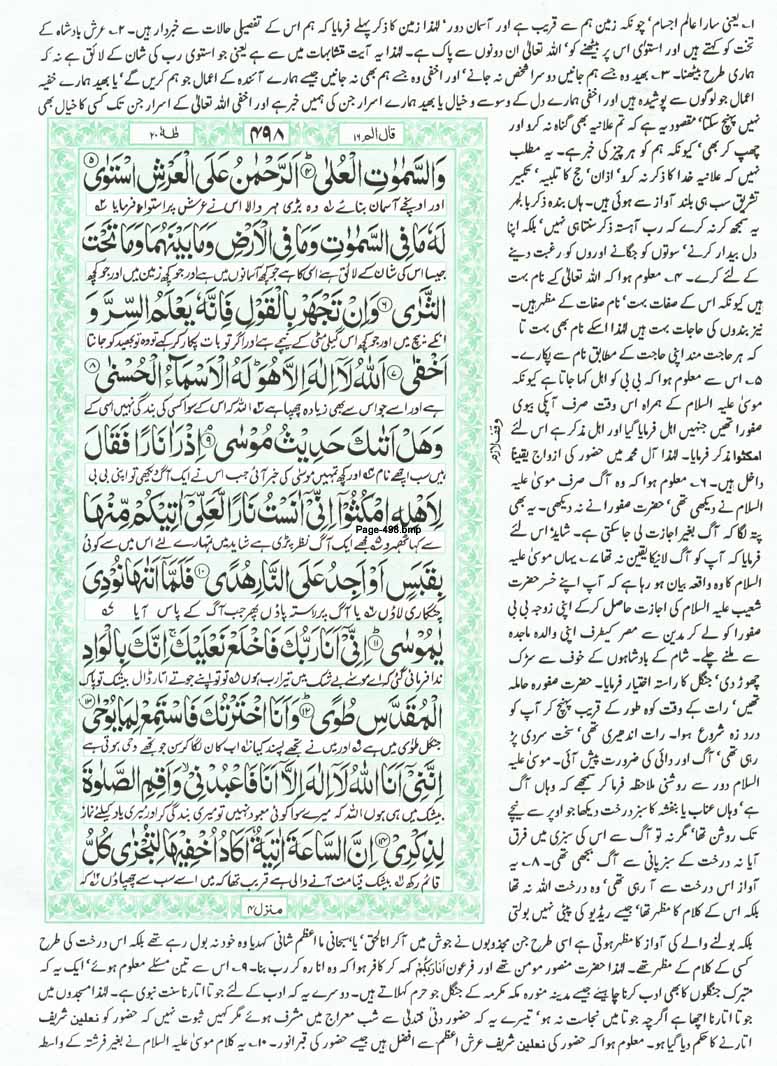 ۱۔ یعنی سارا عالم اجسام، چونکہ زمین ہم سے قریب ہے اور آسمان دور، لہٰذا زمین کا ذکر پہلے فرمایا کہ ہم اس کے تفصیلی حالات سے خبردار ہیں۔ ۲۔ عرش بادشاہ کے
تخت کو کہتے ہیں اور استویٰ اس پر بیٹھنے کو، اللہ تعالیٰ ان دونوں سے پاک ہے۔ لہٰذا یہ آیت متشابہات میں سے ہے یعنی جو استویٰ رب کی شان کے لائق ہے نہ کہ
ہماری طرح بیٹھنا۔ ۳۔ بھید وہ جسے ہم جانیں دوسرا شخص نہ جانے، اور اخفی وہ جسے ہم بھی نہ جانیں جیسے ہمارے آئندہ کے اعمال جو ہم کریں گے، یا بھید ہمارے خفیہ
اعمال جو لوگوں سے پوشیدہ ہیں اور اخفی ہمارے دل کے وسوسے و خیال یا بھید ہمارے اسرار جن کی ہمیں خبر ہے اور اخفی اللہ تعالیٰ کے اسرار جن تک کسی کا خیال بھی
نہیں پہنچ سکتا، مقصود یہ ہے کہ تم علانیہ بھی گناہ نہ کرو اور
چھپ کر بھی، کیونکہ ہم کو ہر چیز کی خبر ہے۔ یہ مطلب
نہیں کہ علانیہ خدا کا ذکر نہ کرو، اذان، حج کا تلبیہ، تکبیر
تشریق سب ہی بلند آواز سے ہوتی ہیں۔ ہاں بندہ ذکر بالجہر
یہ سمجھ کر نہ کرے کہ رب آہستہ ذکر سنتا ہی نہیں، بلکہ اپنا
دل بیدار کرنے، سوتوں کو جگانے اوروں کو رغبت دینے
کے لئے کرے۔ ۴۔ معلوم ہوا کہ اللہ تعالیٰ کے نام بہت
ہیں کیونکہ اس کے صفات بہت، نام صفات کے مظہر ہیں۔
نیز بندوں کی حاجات بہت ہیں لہٰذا اسکے نام بھی بہت تا
کہ ہر حاجت مند اپنی حاجت کے مطابق نام سے پکارے۔
۵۔ اس سے معلوم ہوا کہ بی بی کو اہل کہا جاتا ہے کیونکہ
موسیٰ علیہ السلام کے ہمراہ اس وقت صرف آپکی بیوی
صفورا تھیں جنہیں اہل فرمایا گیا اور اہل مذکر ہے اس لئے
امکثوا مذکر فرمایا۔ لہٰذا آل محمد میں حضور کی ازواج یقیناً
داخل ہیں۔ ۶۔ معلوم ہوا کہ وہ آگ صرف موسیٰ علیہ
السلام نے دیکھی تھی، حضرت صفورا نے نہ دیکھی۔ یہ بھی
پتہ لگا کہ آگ بغیر اجازت لی جا سکتی ہے۔ شاید اس لئے
فرمایا کہ آپ کو آگ لانیکا یقین نہ تھا ۷۔ یہاں موسیٰ علیہ
السلام کا وہ واقعہ بیان ہو رہا ہے کہ آپ اپنے خسر حضرت
شعیب علیہ السلام کی اجازت حاصل کر کے اپنی زوجہ بی بی
صفورا کو لے کر مدین سے مصر کیطرف اپنی والدہ ماجدہ
سے ملنے چلے۔ شام کے بادشاہوں کے خوف سے سڑک
چھوڑ دی، جنگل کا راستہ اختیار فرمایا۔ حضرت صفورہ حاملہ
تھیں، رات کے وقت کوہ طور کے قریب پہنچ کر آپ کو
درد زہ شروع ہوا۔ رات اندھیری تھی، سخت سردی پڑ
رہی تھی، آگ اور دائی کی ضرورت پیش آئی۔ موسیٰ علیہ
السلام دور سے روشنی ملاحظہ فرما کر سمجھے کہ وہاں آگ
ہے، وہاں عناب یا بنفشہ کا سبز درخت دیکھا جو اوپر سے نیچے
تک روشن تھا، مگر نہ تو آگ سے اس کی سبزی میں فرق
آیا نہ درخت کے سبز پانی سے آگ بجھی تھی۔ ۸۔ یہ
آواز اس درخت سے آ رہی تھی، وہ درخت اللہ نہ تھا
بلکہ اس کے کلام کا مظہر تھا، جیسے ریڈیو کی پیٹی نہیں بولتی
قال الم ۱۶ ۴۹۸ طٰہٰ ۲۰
وَالسَّمٰوٰتِ الْعُلٰی ۴ اَلرَّحْمٰنُ عَلَی الْعَرْشِ اسْتَوٰی ۵
اور اونچے آسمان بنائے وہ بڑی مہر والا اس نے عرش پر استواء فرمایا
لَہٗ مَا فِی السَّمٰوٰتِ وَمَا فِی الْاَرْضِ وَمَا بَیْنَہُمَا وَمَا تَحْتَ
جیسا اس کی شان کے لائق ہے اسی کا ہے جو کچھ آسمانوں میں ہے اور جو کچھ زمین میں اور جو کچھ
الثَّرٰی ۶ وَاِنْ تَجْہَرْ بِالْقَوْلِ فَاِنَّہٗ یَعْلَمُ السِّرَّ وَ
انکے بیچ میں اور جو کچھ اس گیلی مٹی کے نیچے ہے اور اگر تو بات پکار کر کہے تو وہ تو بھید کو جانتا
اَخْفٰی ۷ اَللّٰہُ لَآ اِلٰہَ اِلَّا ہُوَ لَہُ الْاَسْمَآءُ الْحُسْنٰی ۸
ہے اور اسے جو اس سے بھی زیادہ چھپا ہے اللہ کہ اس کے سوا کسی کی بندگی نہیں اسی کے
وَہَلْ اَتٰىکَ حَدِیْثُ مُوْسٰی ۹ اِذْ رَاٰ نَارًا فَقَالَ
ہیں سب اچھے نام اور کچھ تمہیں موسیٰ کی خبر آئی جب اس نے ایک آگ دیکھی تو اپنی بی بی
لِاَہْلِہِ امْکُثُوْٓا اِنِّیْٓ اٰنَسْتُ نَارًا لَّعَلِّیْٓ اٰتِیْکُمْ مِّنْہَا
Page-498.bmp
سے کہا ٹھہرو مجھے ایک آگ نظر پڑی ہے شاید میں تمہارے لئے اس میں سے کوئی
بِقَبَسٍ اَوْ اَجِدُ عَلَی النَّارِ ہُدًی ۱۰ فَلَمَّآ اَتٰىہَا نُوْدِیَ
چنگاری لاؤں یا آگ پر راستہ پاؤں پھر جب آگ کے پاس آیا
یٰمُوْسٰی ۱۱ اِنِّیْٓ اَنَا رَبُّکَ فَاخْلَعْ نَعْلَیْکَ اِنَّکَ بِالْوَادِ
ندا فرمائی گئی کہ اے موسیٰ بے شک میں تیرا رب ہوں تو تو اپنے جوتے اتار ڈال بیشک تو پاک
الْمُقَدَّسِ طُوًی ۱۲ وَاَنَا اخْتَرْتُکَ فَاسْتَمِعْ لِمَا یُوْحٰی ۱۳
جنگل طویٰ میں ہے اور میں نے تجھے پسند کیا اب کان لگا کر سن جو تجھے وحی ہوتی ہے
اِنَّنِیْٓ اَنَا اللّٰہُ لَآ اِلٰہَ اِلَّآ اَنَا فَاعْبُدْنِیْ وَاَقِمِ الصَّلٰوۃَ
بیشک میں ہی ہوں اللہ کہ میرے سوا کوئی معبود نہیں تو میری بندگی کر اور میری یاد کیلئے نماز
لِذِکْرِیْ ۱۴ اِنَّ السَّاعَۃَ اٰتِیَۃٌ اَکَادُ اُخْفِیْہَا لِتُجْزٰی کُلُّ
قائم رکھ بیشک قیامت آنے والی ہے قریب تھا کہ میں اسے سب سے چھپاؤں کہ
منزل ۴
وقف لازم
بلکہ بولنے والے کی آواز کا مظہر ہوتی ہے اسی طرح جن مجذوبوں نے جوش میں آ کر انا الحق، یا سبحانی ما اعظم شانی کہدیا وہ خود نہ بول رہے تھے بلکہ اس درخت کی طرح
کسی کے کلام کے مظہر تھے۔ لہٰذا حضرت منصور مومن تھے اور فرعون اَنَا رَبُّکُمْ کہہ کر کافر ہوا کہ وہ انا رہ کر رب بنا۔ ۹۔ اس سے تین مسئلے معلوم ہوئے، ایک یہ کہ
متبرک جنگلوں کا بھی ادب کرنا چاہیئے جیسے مدینہ منورہ مکہ مکرمہ کے جنگل جو حرم کہلاتے ہیں۔ دوسرے یہ کہ ادب کے لئے جوتا اتارنا سنت نبوی ہے۔ لہٰذا مسجدوں میں
جوتا اتارنا اچھا ہے اگرچہ جوتا میں نجاست نہ ہو، تیسرے یہ کہ حضور دنیٰ فتدلیٰ سے شب معراج میں مشرف ہوئے مگر کہیں ثبوت نہیں کہ حضور کو نعلین شریف
اتارنے کا حکم دیا گیا ہو۔ معلوم ہوا کہ حضور کی نعلین شریف عرش اعظم سے افضل ہیں جیسے حضور کی قبر انور۔ ۱۰۔ یہ کلام موسیٰ علیہ السلام نے بغیر فرشتہ کے واسطہ